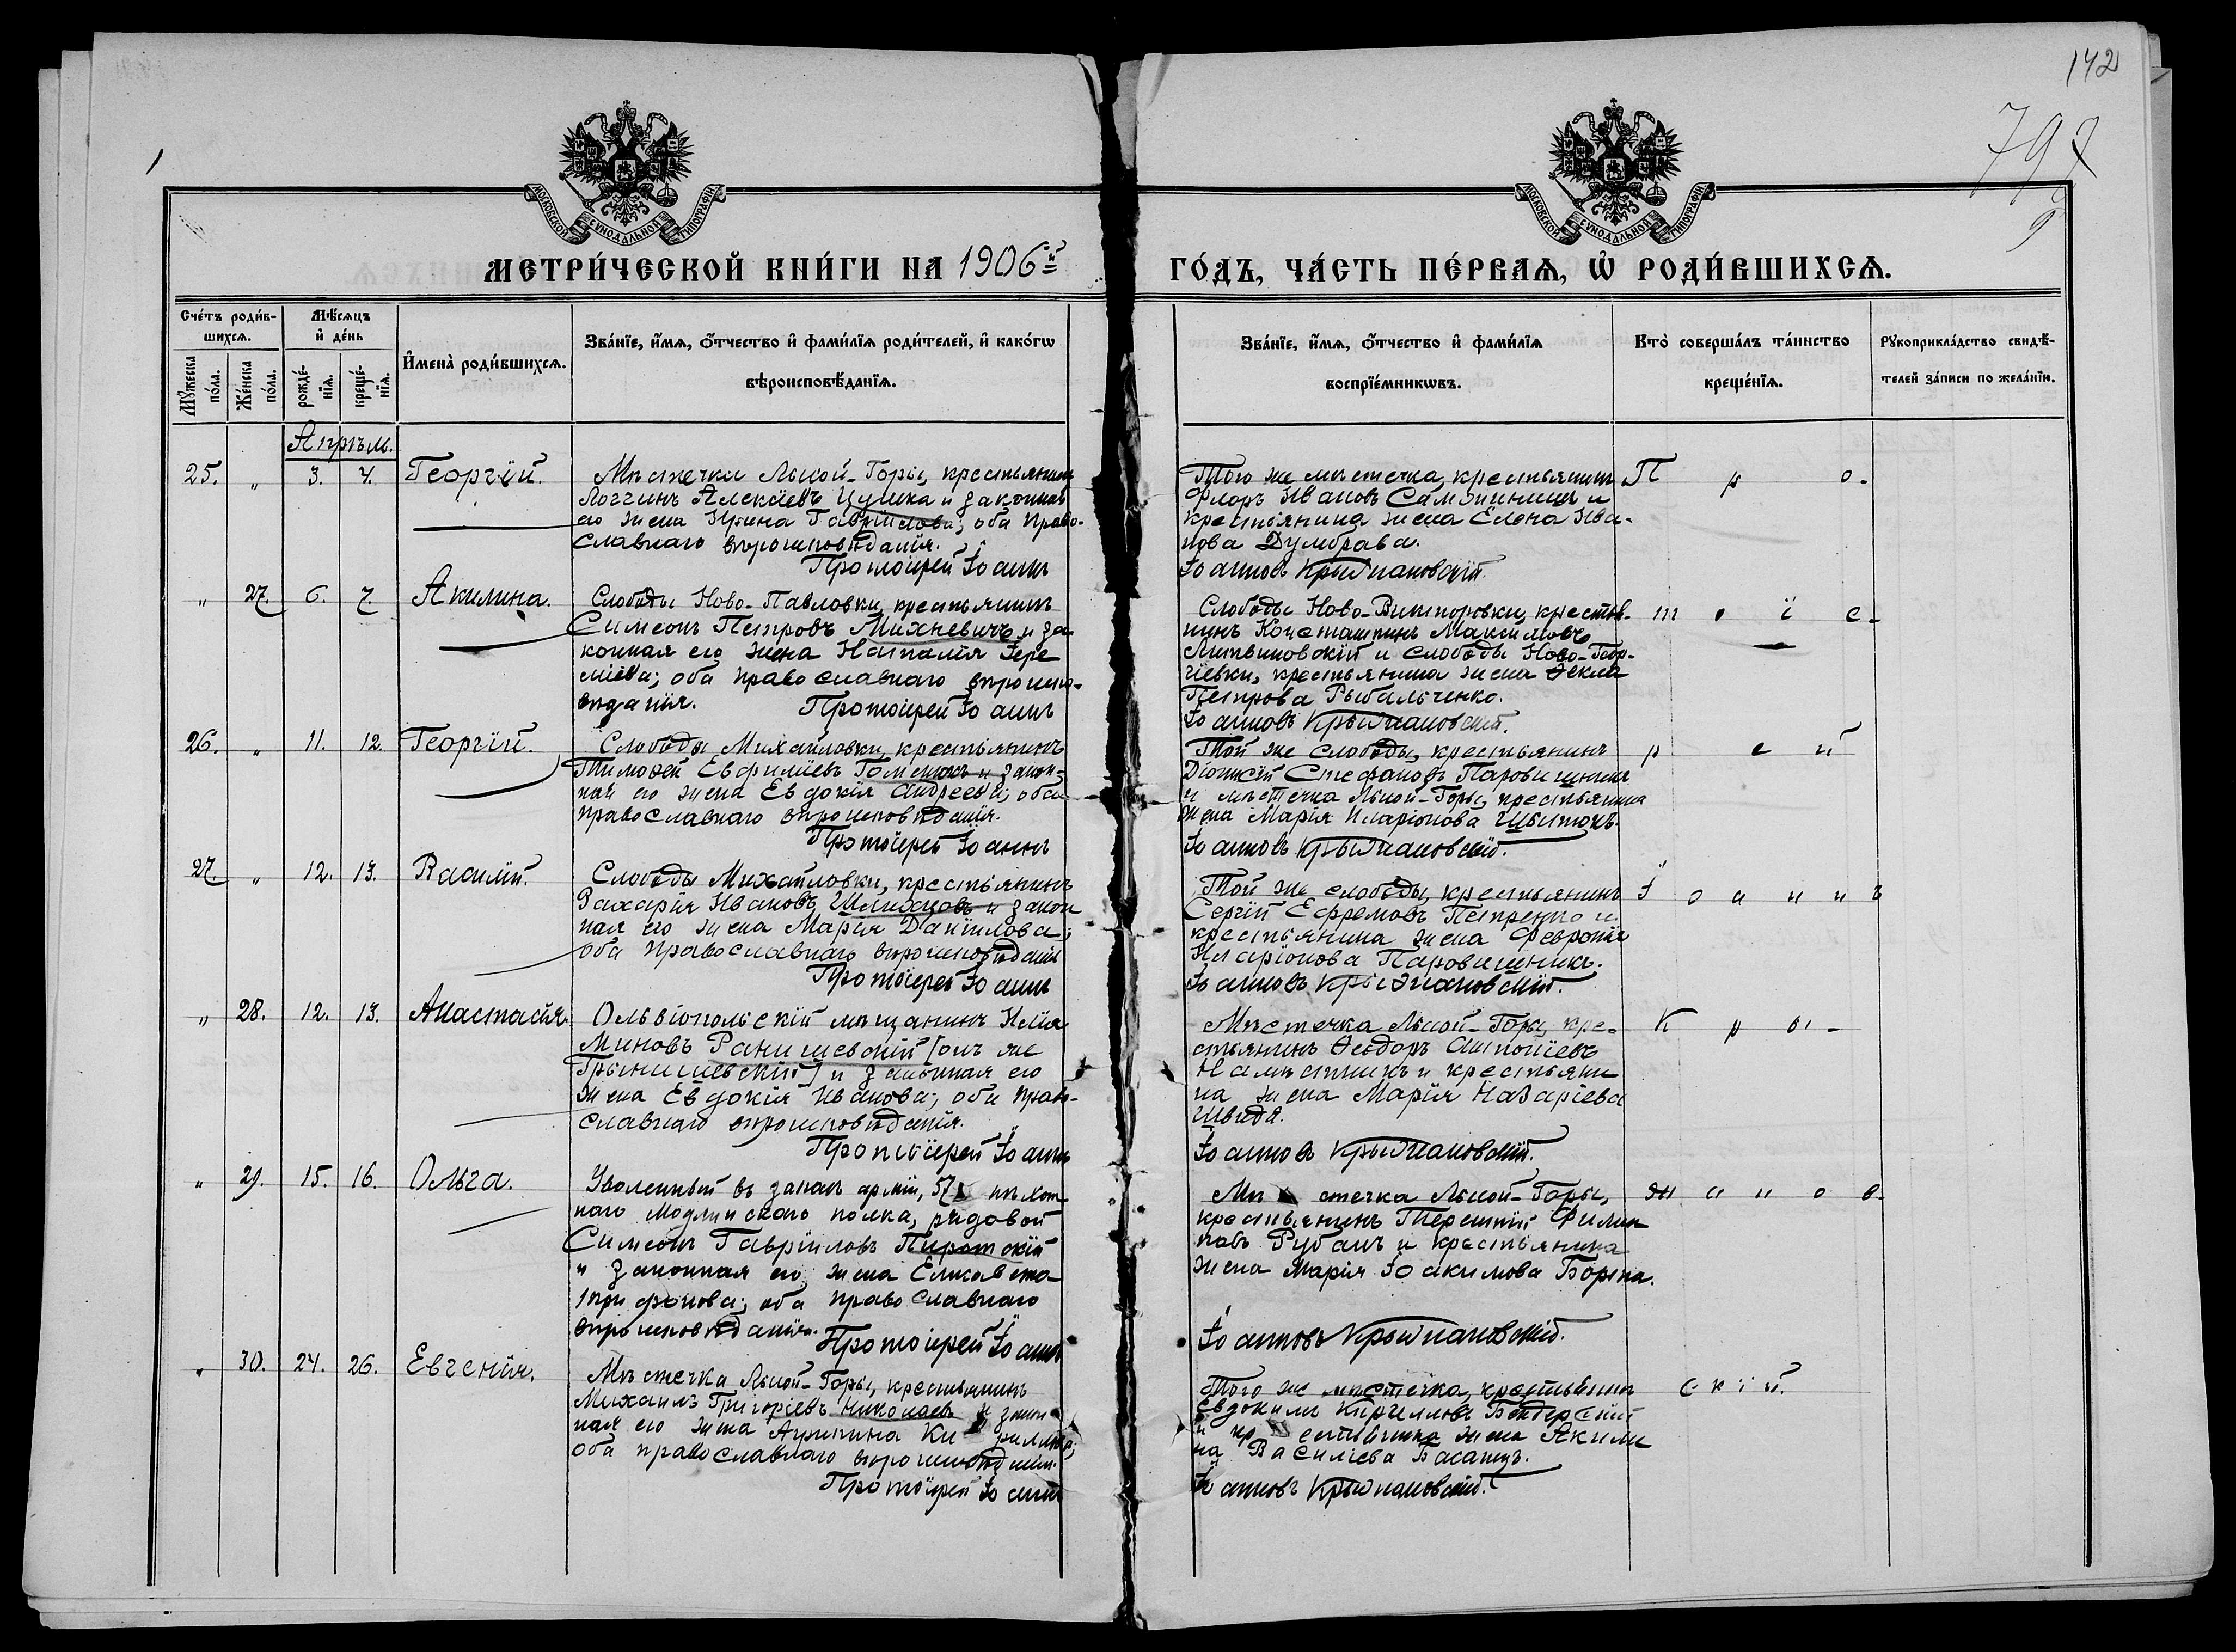 142
792
9
1
МОСКОВСКОЙ СѴНОДАЛЬНОЙ ТИПОГРАФІИ
МОСКОВСКОЙ СѴНОДАЛЬНОЙ ТИПОГРАФІИ
МЕТРИ́ЧЕСКОЙ КНИ́ГИ НА 1906й
ГО́ДЪ, ЧА́СТЬ ПЕ́РВАѦ, Ѡ҆ РОДИ́ВШИХСѦ.
Сче́тъ роди́в-
шихсѧ.
Мꙋжеска по́ла.
Же́нска по́ла.
Мѣ́сѧцъ
и҆ де́нь
рожде́-
нїѧ.
креще́-
нїѧ.
И҆мена̀ роди́вшихсѧ.
Зва́нїе, и҆́мѧ, ѻ҆́тчество и҆ фами́лїѧ роди́телей, и҆ како́гѡ
вѣроисповѣ́данїѧ.
Зва́нїе, и҆́мѧ, ѻ҆́тчество и҆ фами́лїѧ
воспрїе́мникѡвъ.
Кто̀ соверша́лъ та́инство
креще́нїѧ.
Рꙋкоприкла́дство свидѣ́-
телей за́писи по жела́нїю.
Апрѣль.
25. „ 3. 4. Георгій.
Мѣстечка Лысой-Горы, крестьянинъ
Логгинъ Алексіевъ Цушка и законная
его жена Ирина Гавріилова; оба право-
славнаго вѣроисповѣданія.
Протоіерей Іоаннъ
Того же мѣстечка, крестьянинъ
Флоръ Ивановъ и
крестьянина жена Елена Ива-
нова Думбрава.
Іоанновъ Крыжановскій.
П р о-
„ 27. 6. 7. Акилина.
Слободы Ново-Павловки, крестьянинъ
Симеонъ Петровъ Михневичъ и за-
конная его жена Наталія Іере
міева; оба православнаго вѣроиспо-
вѣданія. Протоіерей Іоаннъ
Слободы Ново-Викторовки, крестья-
нинъ Константинъ Максимовъ
Литвиновскій и слободы Ново-Геор-
гіевки, крестьянина жена Ѳекла
Петрова Рыбальченко.
Іоанновъ Крыжановскій.
т о і е-
26. „ 11. 12. Георгій.
Слободы Михайловки, крестьянинъ
Тимоѳей Евфиміевъ Гоменюкъ и закон-
ная его жена Евдокія Андреева; оба
православнаго вѣроисповѣданія.
Протоіерей Іоаннъ
Той же слободы, крестьянинъ
Діонисій Стефановъ Паровишникъ
и мѣстечка Лысой-Горы, крестьянина
жена Марія Иларіонова Швитокъ.
Іоанновъ Крыжановскій.
р е й
27. „ 12. 13. Василій.
Слободы Михайловки, крестьянинъ
Захарія Ивановъ Шлихцовъ и закон
ная его жена Марія Даніилова;
оба православнаго вѣроисповѣданія
Протоіерей Іоаннъ
Той же слободы, крестьянинъ
Сергій Ефремовъ Петренко и
крестьянина жена Февронія
Иларіонова Паровишникъ.
Іоанновъ Крыжановскій.
І о а н н ъ
„ 28. 12. 13. Анастасія.
Ольвіопольскій мѣщанинъ Илія
Миновъ Ранишевскій [онъ же
Гранишевскій] и законная его
жена Евдокія Иванова; оба право-
славнаго вѣроисповѣданія.
Протоіерей Іоаннъ
Мѣстечка Лысой-Горы, кре-
стьянинъ Ѳеодоръ Антоніевъ
Намѣстникъ и крестьяни
на жена Марія Назаріева
Швидя.
Іоанновъ Крыжановскій.
К р ы-
„ 29. 15. 16. Ольга.
Уволенный въ запасъ арміи, 57 пѣхот-
наго Модлинскаго полка, рядовой
Симеонъ Гавріиловъ Пиротскій
и законная его жена Елисавета
Трифонова; оба православнаго
вѣроисповѣданія. Протоіерей Іоаннъ
Мѣстечка Лысой-Горы,
крестьянинъ Терентій Филип
повъ Рубанъ и крестьянина
жена Марія Іоакимова Борзна.
Іоанновъ Крыжановскій.
ж а н о в-
„ 30. 24. 26. Евгенія.
Мѣстечка Лысой-Горы, крестьянинъ
Михаилъ Григоріевъ Николаевъ и закон
ная его жена Агрипина Кириллова;
оба православнаго вѣроисповѣданія.
Протоіерей Іоаннъ
Того же мѣстечка, крестьянинъ
Евдокимъ Кирилловъ Бендерскій
и крестьянина жена Акили
на Василіева Басанецъ.
Іоанновъ Крыжановскій.
с к і й.